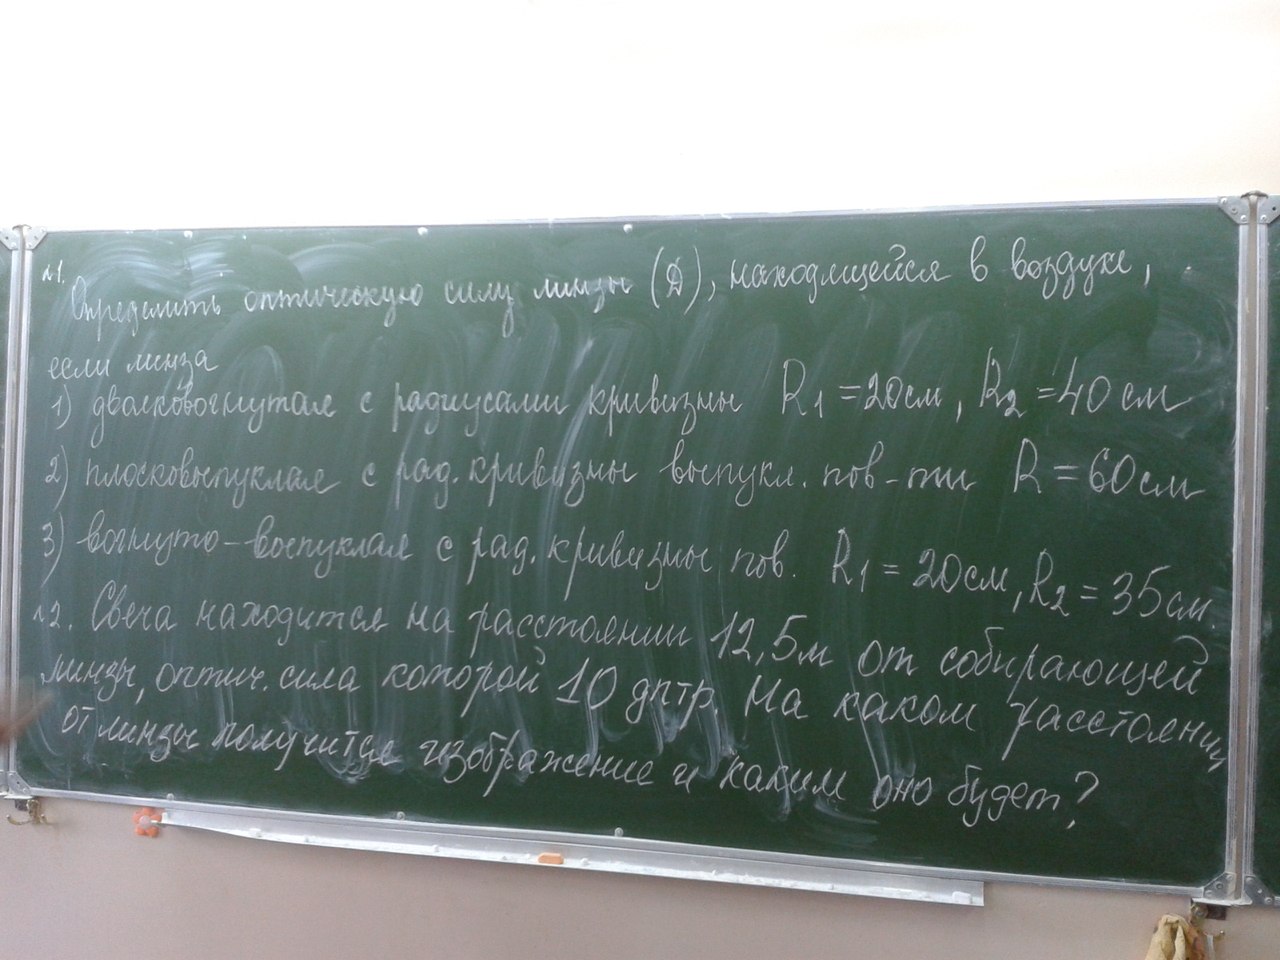 №1.
Определить оптическую силу линзы (Д), находящейся в воздухе,
если линза
1) двояковогнутая с радиусами кривизны R₁ = 20см, R₂ = 40 см
2) плосковыпуклая с рад. кривизны выпукл. пов-ти R = 60 см
3) вогнуто-выпуклая с рад. кривизны пов. R₁ = 20см, R₂ = 35 см
№2. Свеча находится на расстоянии 12,5м от собирающей
линзы, оптич. сила которой 10 дптр. На каком расстоянии
от линзы получится изображение и каким оно будет?